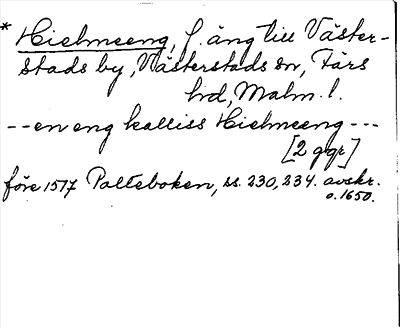 * Hielmeeng, f. äng till Väster-
stads by, Västerstads sn, Färs
hd, Malm. l.
-- en eng kalliss Hielmeeng ---
[2 ggr]
före 1517 Palteboken, ss. 230, 234. avskr.
o. 1650.